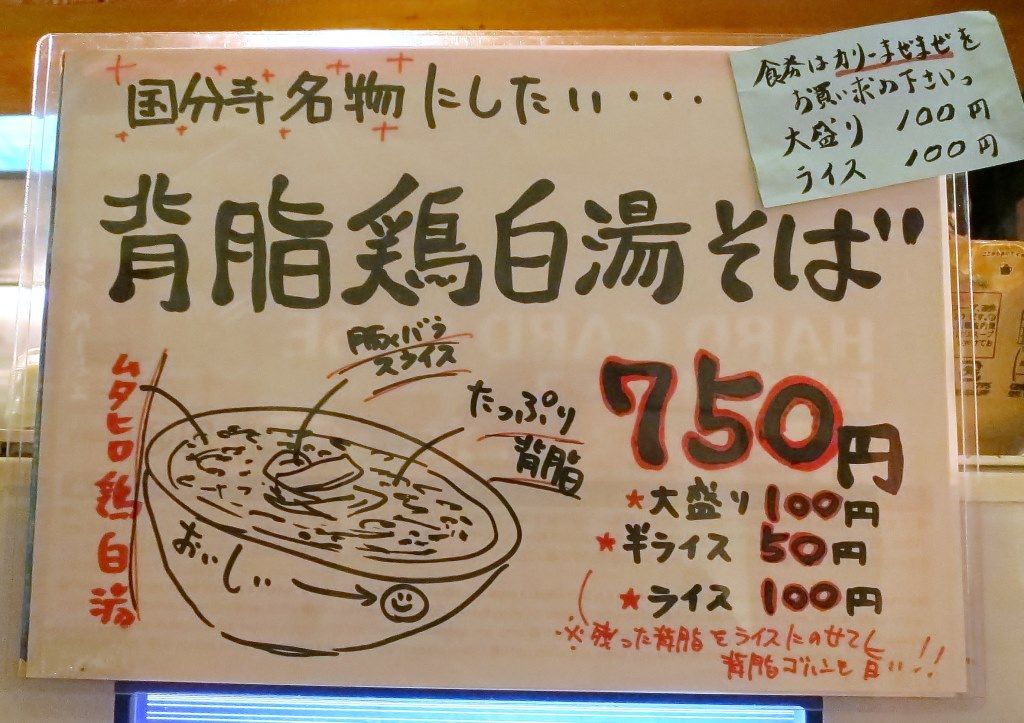 国分寺名物にしたい・・・
食券はカリーまぜまぜを
お買い求め下さいっ
大盛り 100円
ライス 100円
背脂鶏白湯そば
豚バラ
スライス
たっぷり
背脂
ムタヒロ鶏白湯
おいしい
750円
★大盛り 100円
★半ライス 50円
★ライス 100円
※残った背脂をライスにのせて
背脂ゴハンも旨い!!